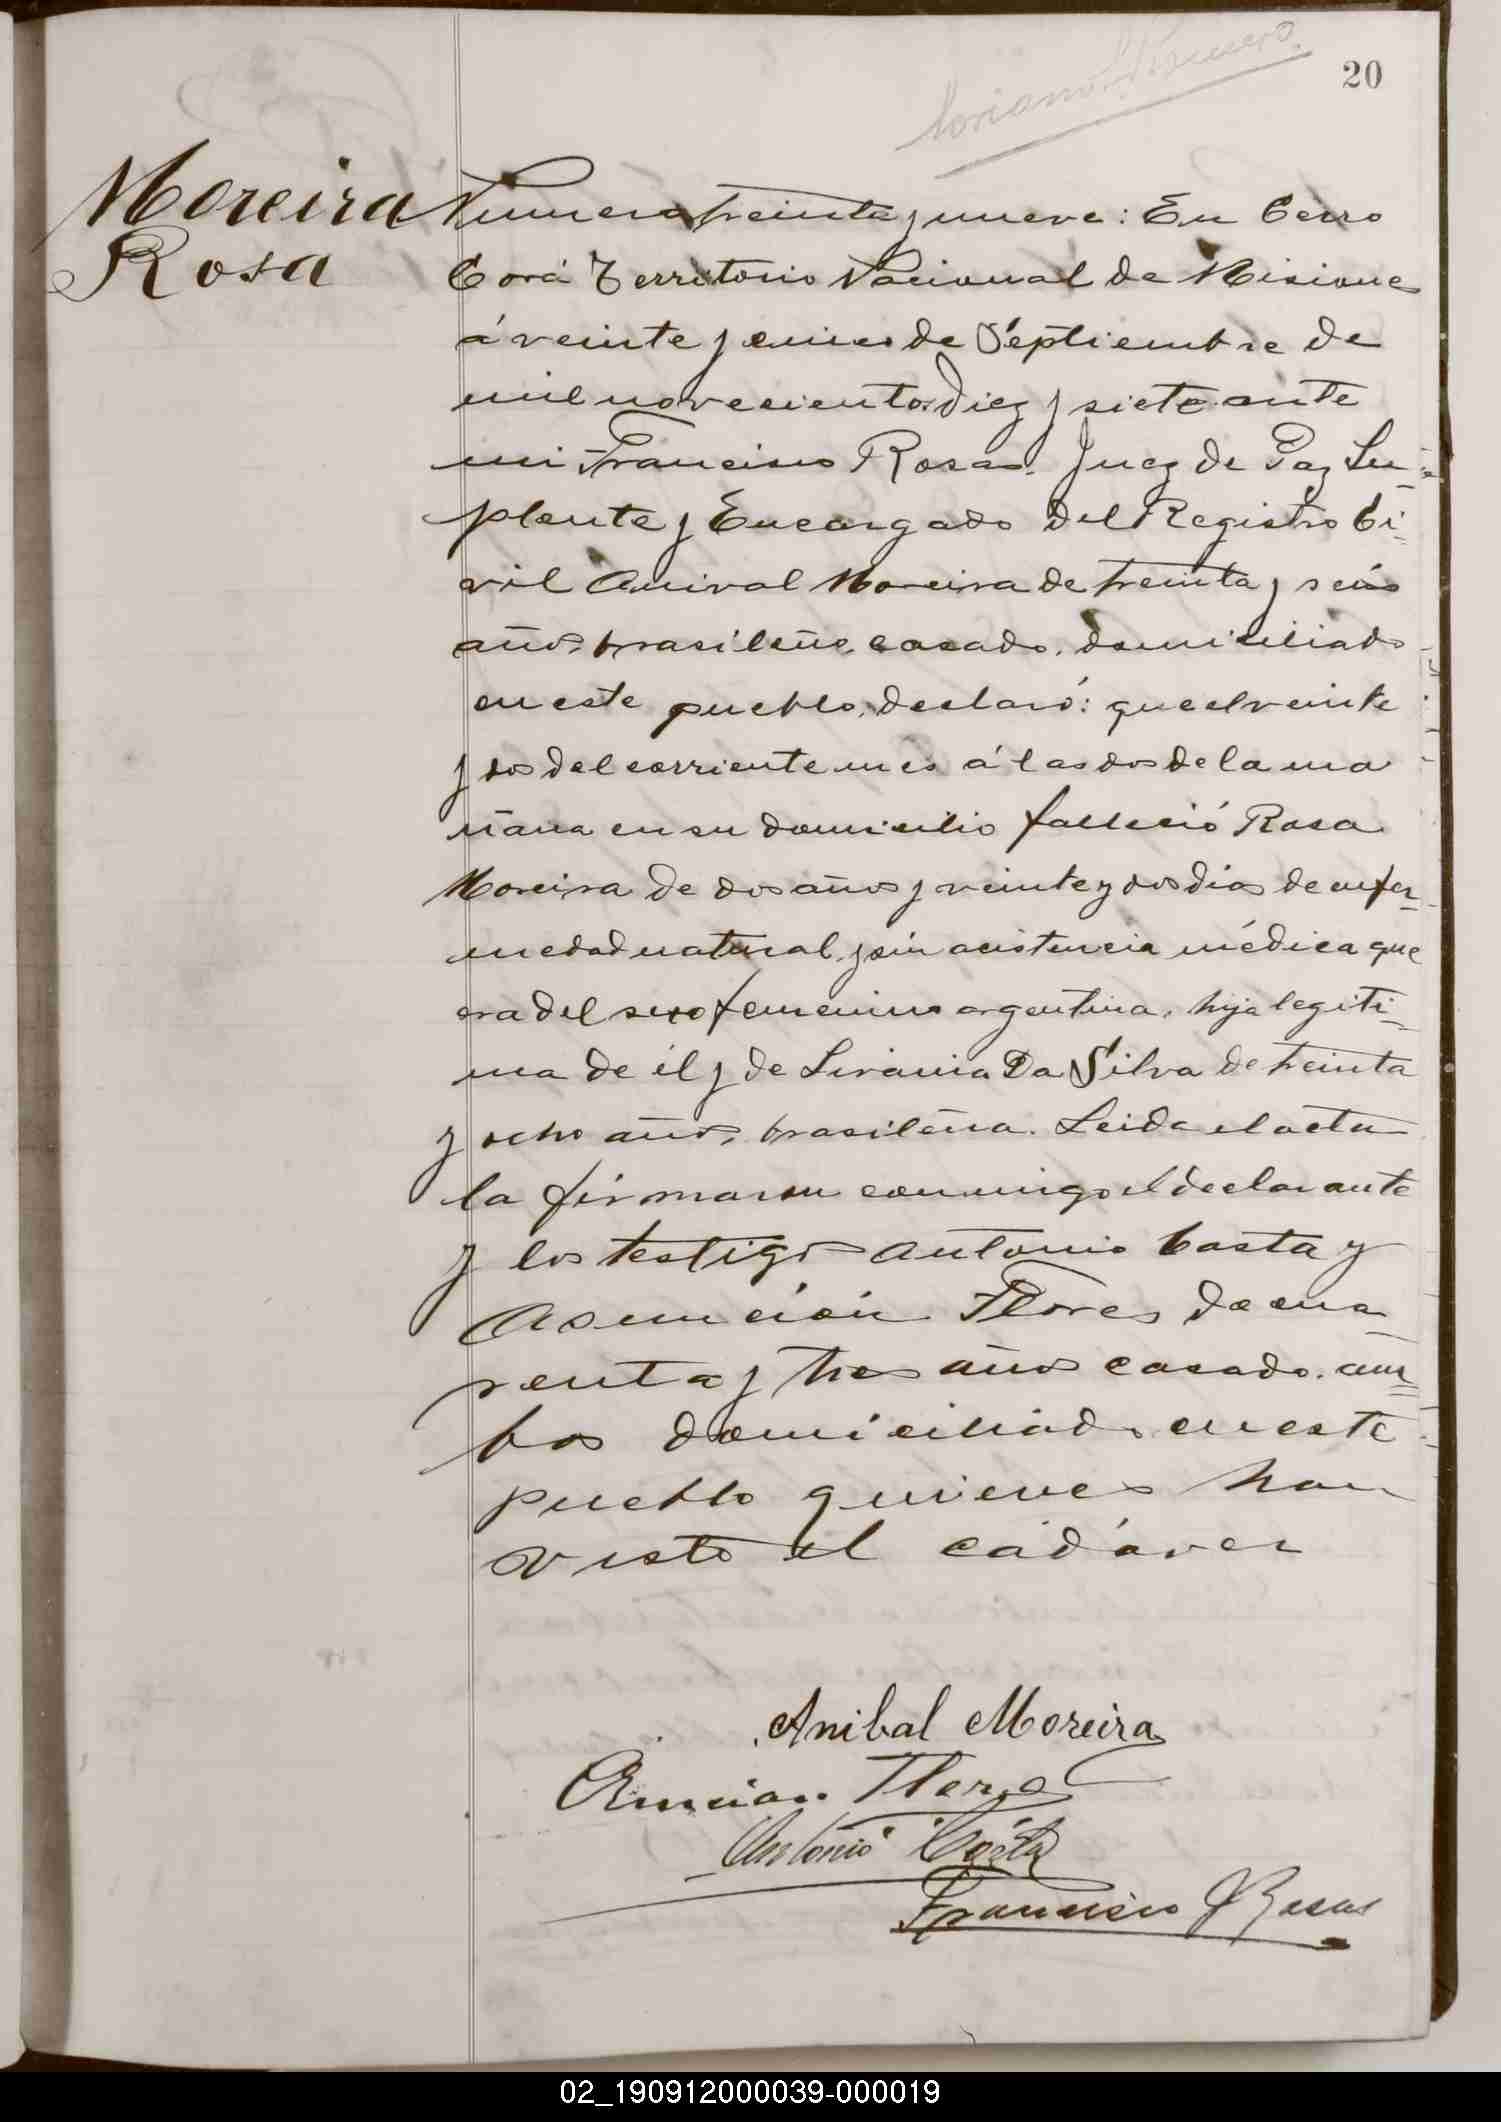 20
Moreira
Rosa
Numero treinta y nueve: En Cerro
Corá Territorio Nacional de Misiones
á veinte y cinco de Septiembre de
mil novecientos diez y siete ante
mi Francisco Rosas. Juez de Paz Su=
plente y Encargado del Registro Ci=
vil Anival Moreira de treinta y seis
años, brasileño, casado, domiciliado
en este pueblo, declaró: que el veinte
y dos del corriente mes á las dos de la ma
ñana en su domicilio falleció Rosa
Moreira de dos años y veinte y dos dias de enfer=
medad natural, y sin acistencia médica que
era del sexo femenino argentina, hija legiti=
ma de él y de Da Silva de treinta
y ocho años, brasileña. Leida el acta
la firmaron conmigo el declarante
y los testigos Antonio Costa y
Asunción Flores de cua
renta y tres años casado. am=
bos domiciliados en este
pueblo quienes han
visto el cadáver
Anibal Moreira
Flores
Antonio Costa
Francisco Rosas
02_190912000039-000019